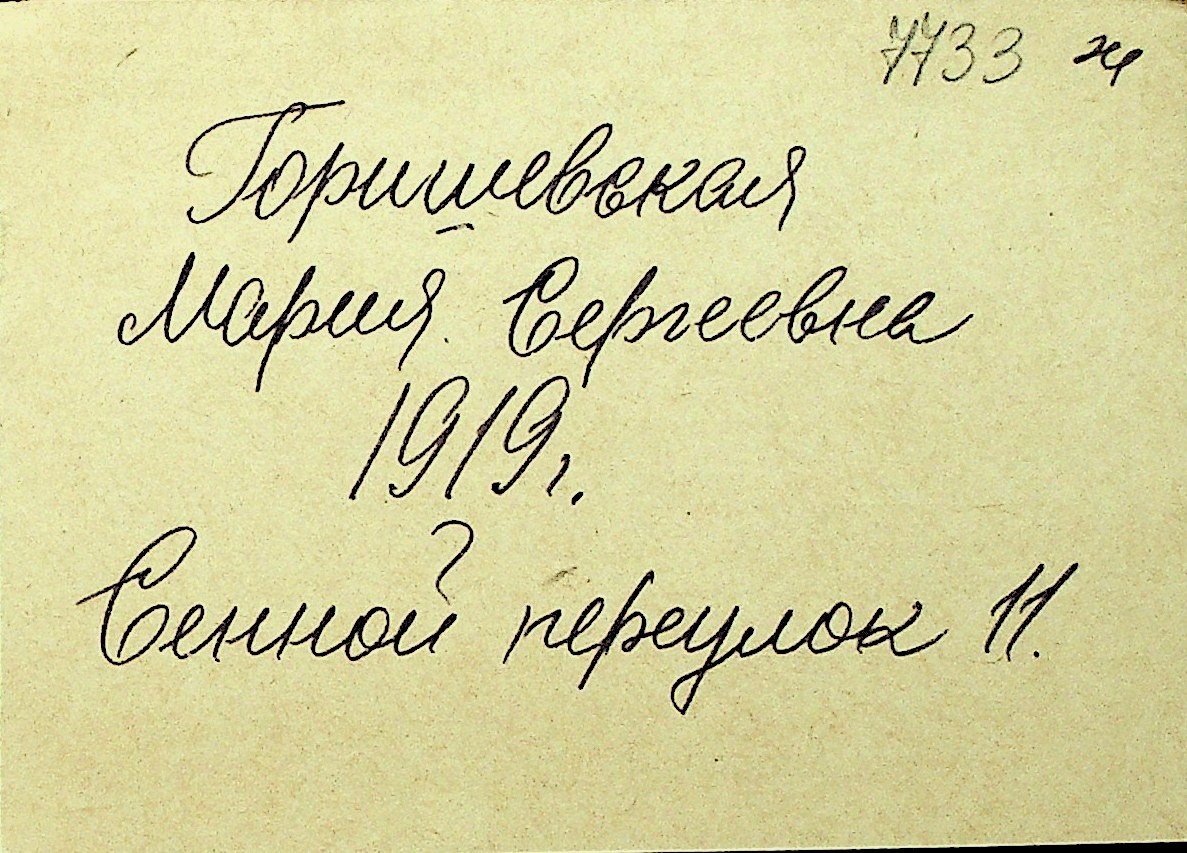 7733 ж
Горишевская
Мария Сергеевна
1919г.
Сенной переулок 11.